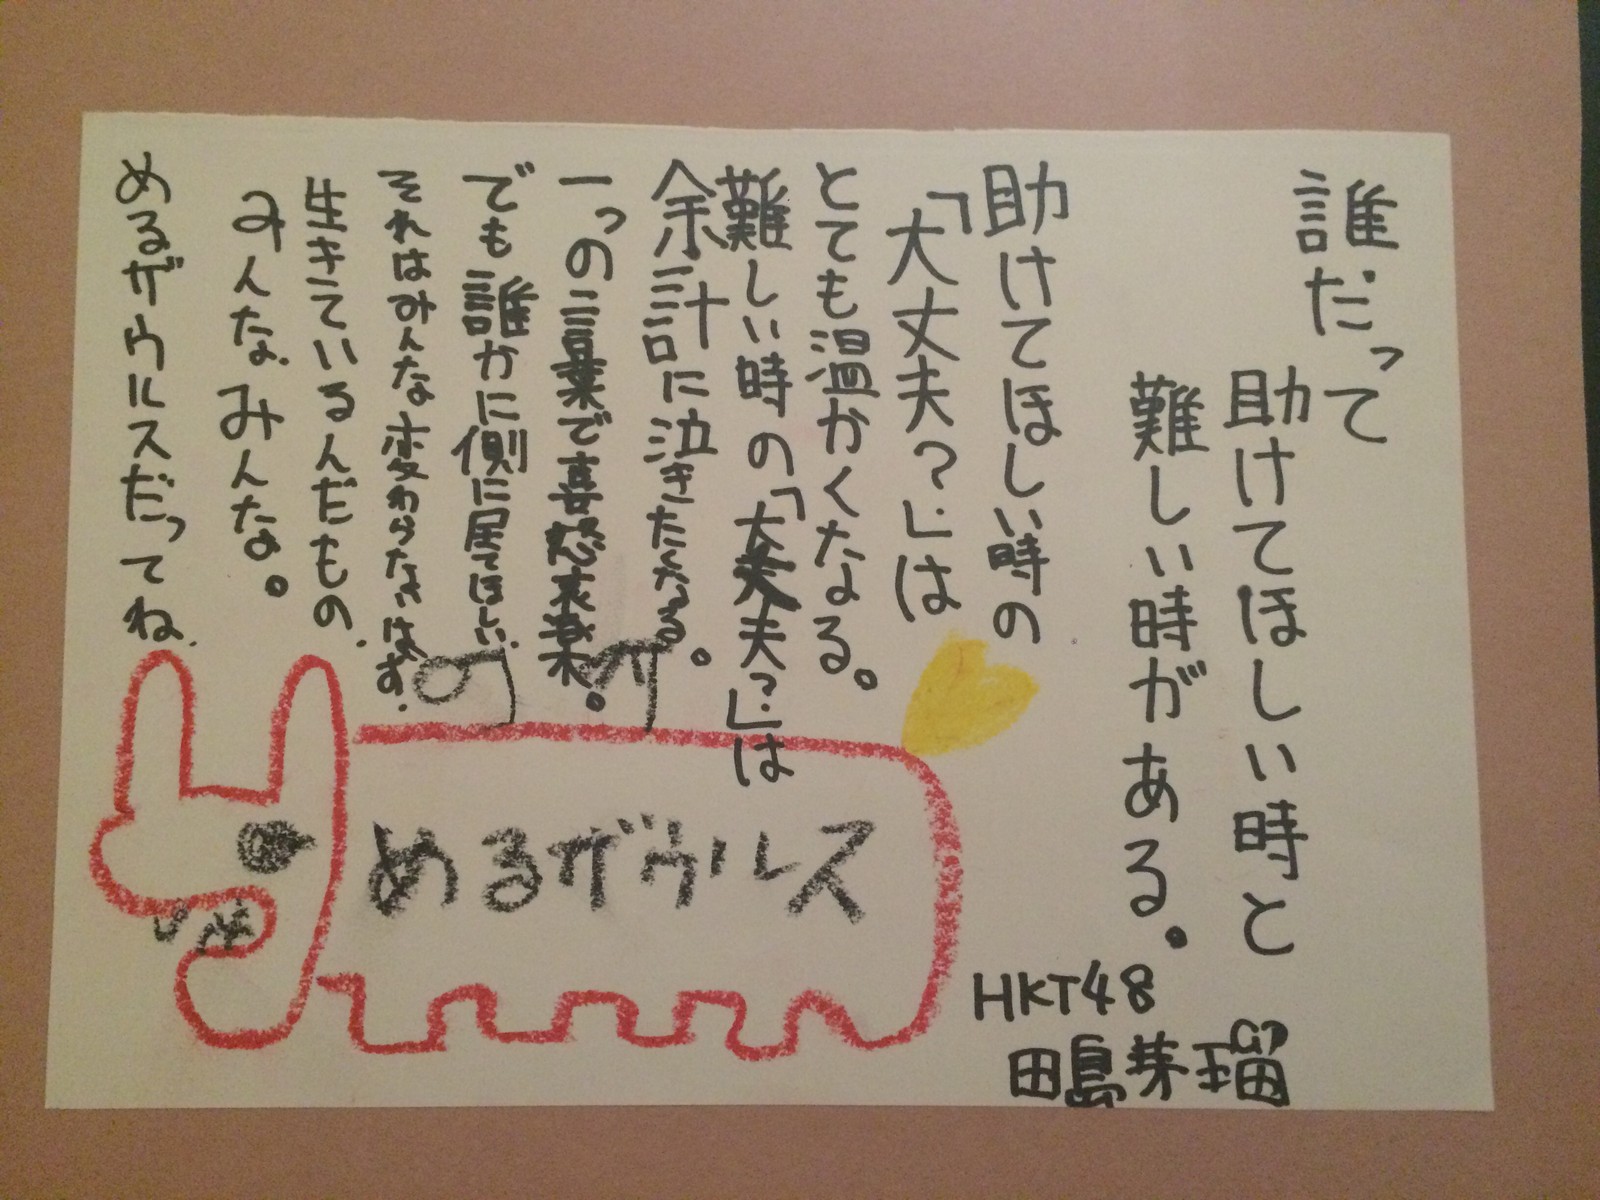 誰だって
助けてほしい時と
難しい時がある。
助けてほしい時の
「大丈夫？」は
とても温かくなる。
難しい時の「大丈夫？」は
余計に泣きたくなる。
一つの言葉で喜怒哀楽。
でも誰かに側に居てほしい.
それはみんな変わらないはず.
生きているんだもの.
みんな.みんな。
めるザウルスだってね.
めるザウルス
HKT48
田島芽瑠